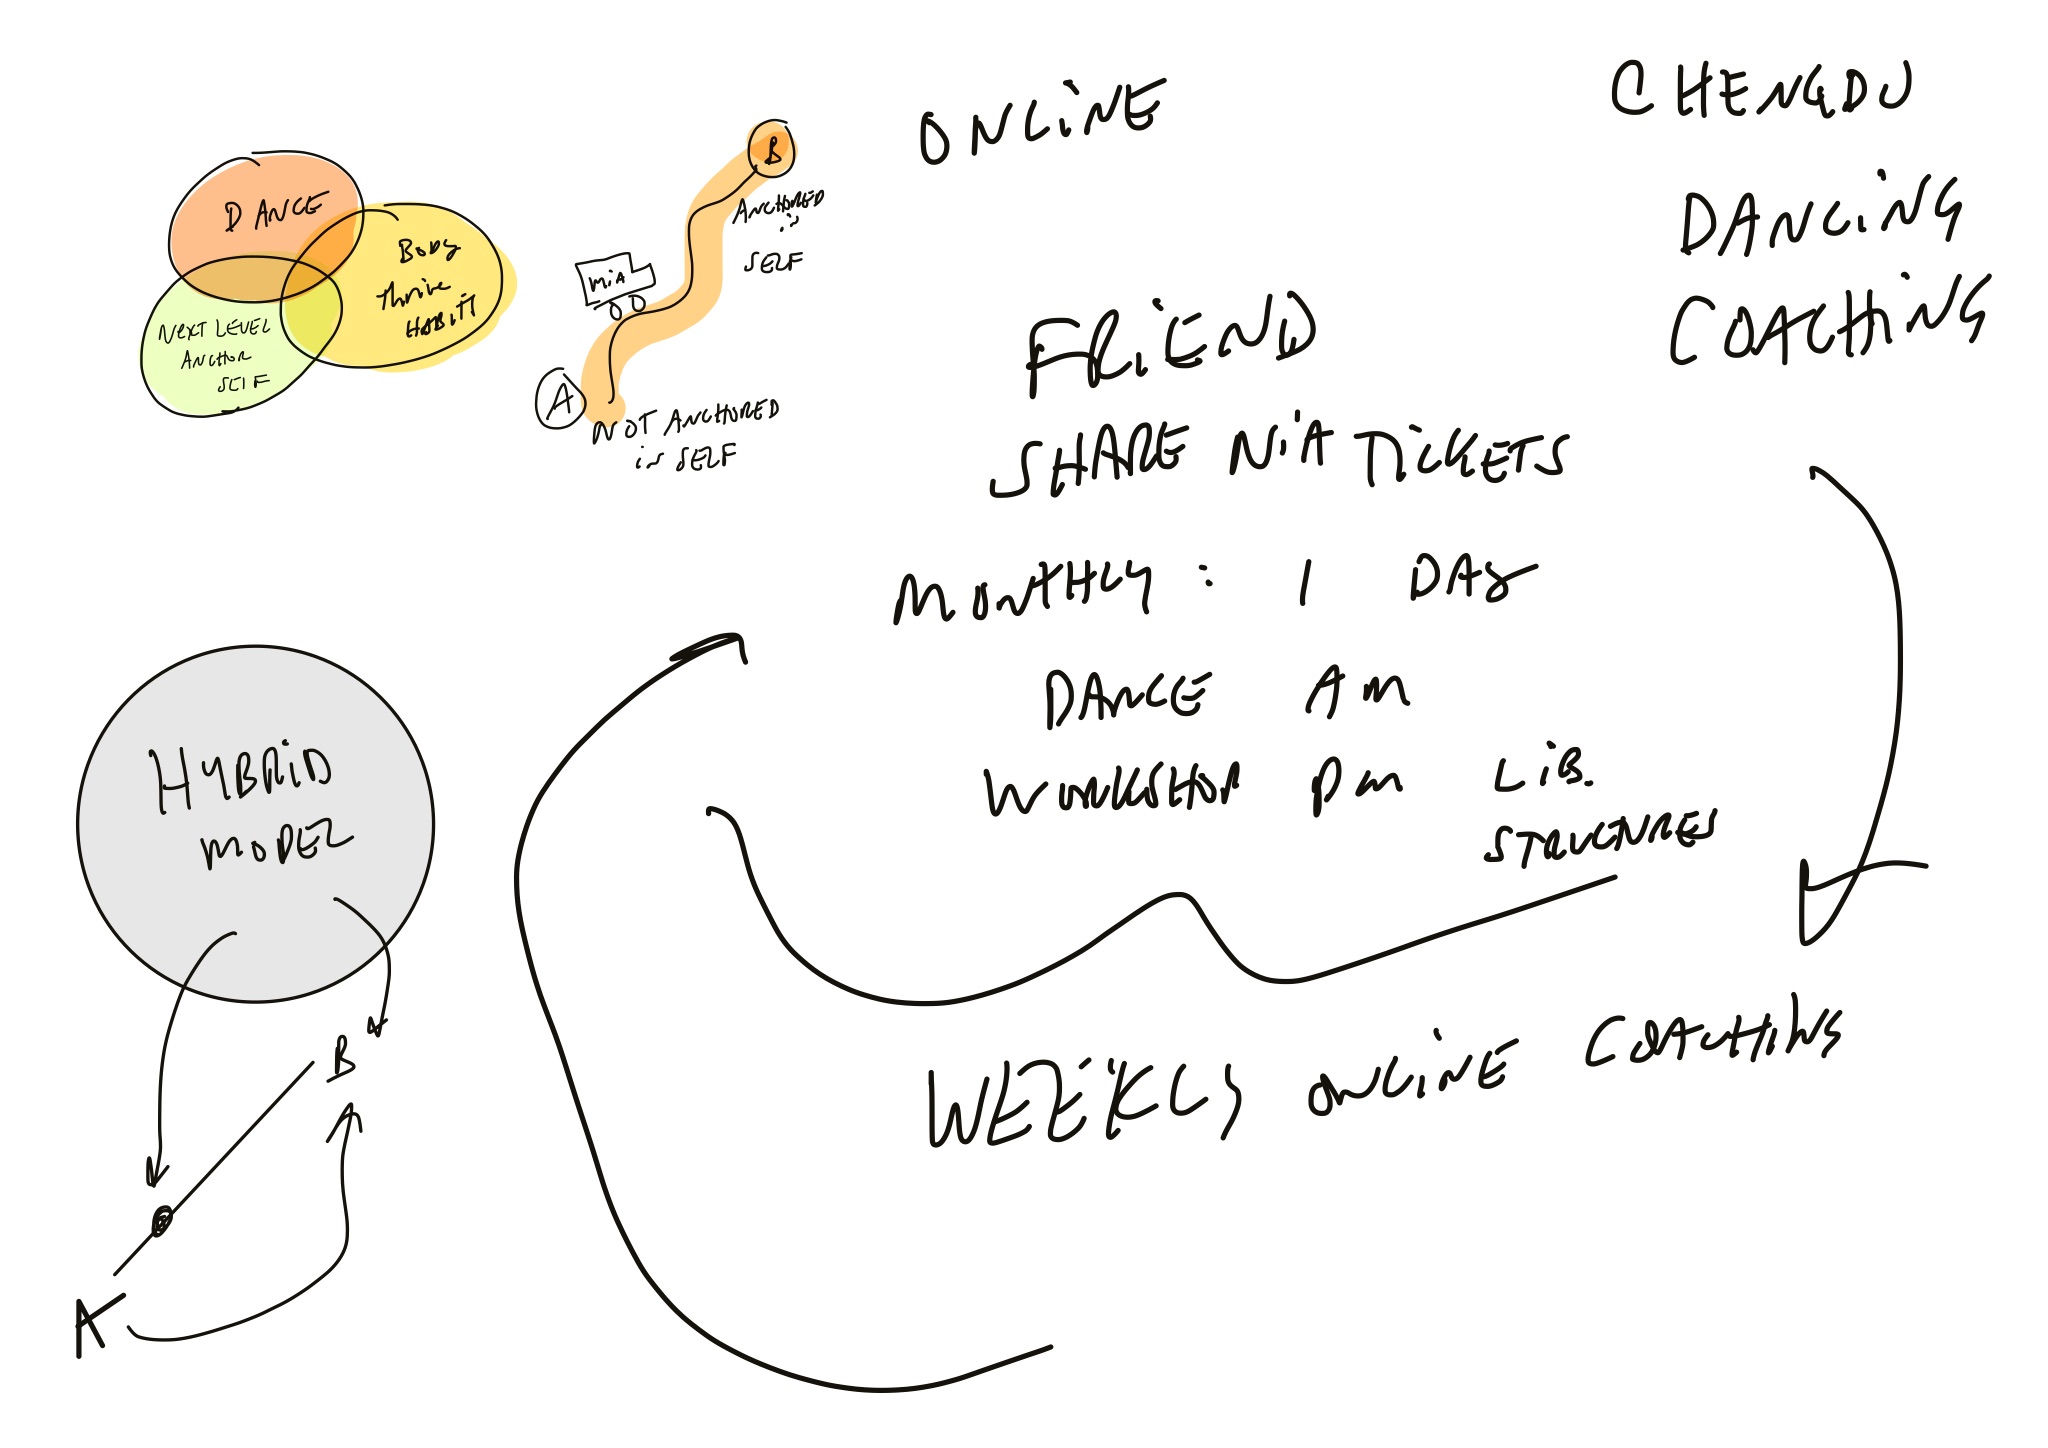 DANCE
BODY
Thrive
HABITS
NEXT LEVEL
ANCHOR
SELF
MiA
B
ANCHORED
is
SELF
A
NOT ANCHORED
in SELF
ONLiNE
CHENGDU
DANCiNG
COACHiNG
FRiEND
SHARE NiA TiCKETS
MONTHLY : 1 DAY
DANCE AM
WORKSHOP PM LiB.
STRUCTURES
HYBRiD
MODEL
B
A
WEEKLY ONLiNE COACHiNG